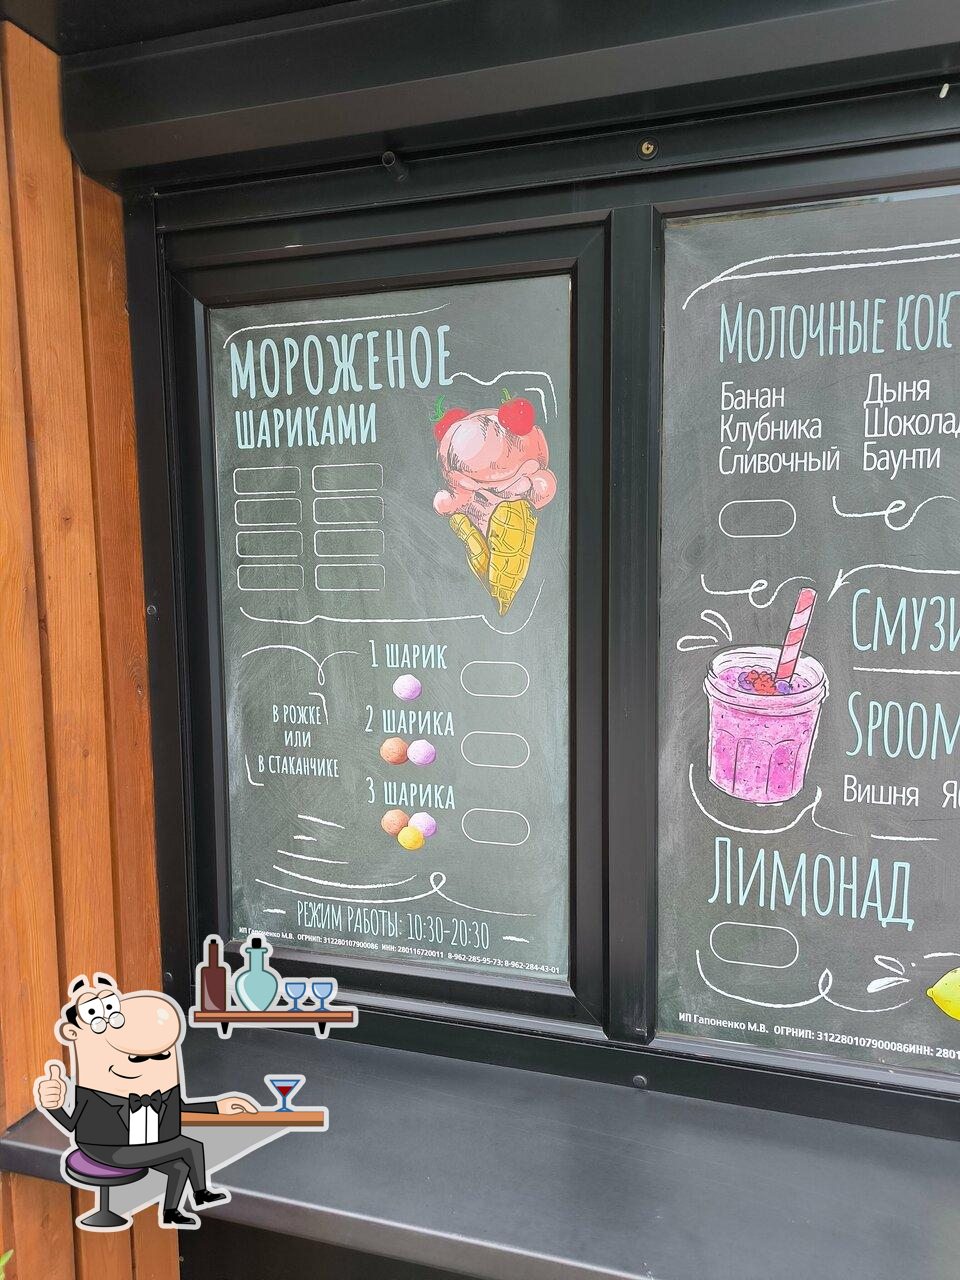 МОРОЖЕНОЕ
ШАРИКАМИ
1 ШАРИК
2 ШАРИКА
3 ШАРИКА
В РОЖКЕ
ИЛИ
В СТАКАНЧИКЕ
РЕЖИМ РАБОТЫ: 10:30-20:30
ИП Гапоненко М.В. ОГРНИП: 312280107900086 ИНН: 280116720011 8-962-285-95-73; 8-962-284-43-01
МОЛОЧНЫЕ КОК
Банан Дыня
Клубника Шоколад
Сливочный Баунти
СМУЗИ
SPOOM
Вишня Яб
ЛИМОНАД
ИП Гапоненко М.В. ОГРНИП: 312280107900086ИНН: 2801